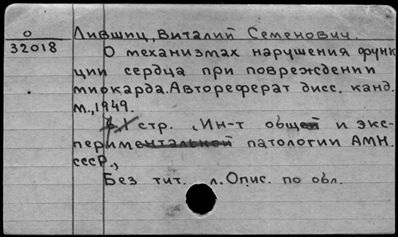 О
32018
Лившиц, Виталий Семенович.
О механизмах нарушения функ
ции сердца при повреждении
миокарда. Автореферат дисс. канд.
М., 1949.
стр. (Ин-т общей и экс-
периментальной патологии АМН.
СССР.,
Без тит. л. Опис. по обл.